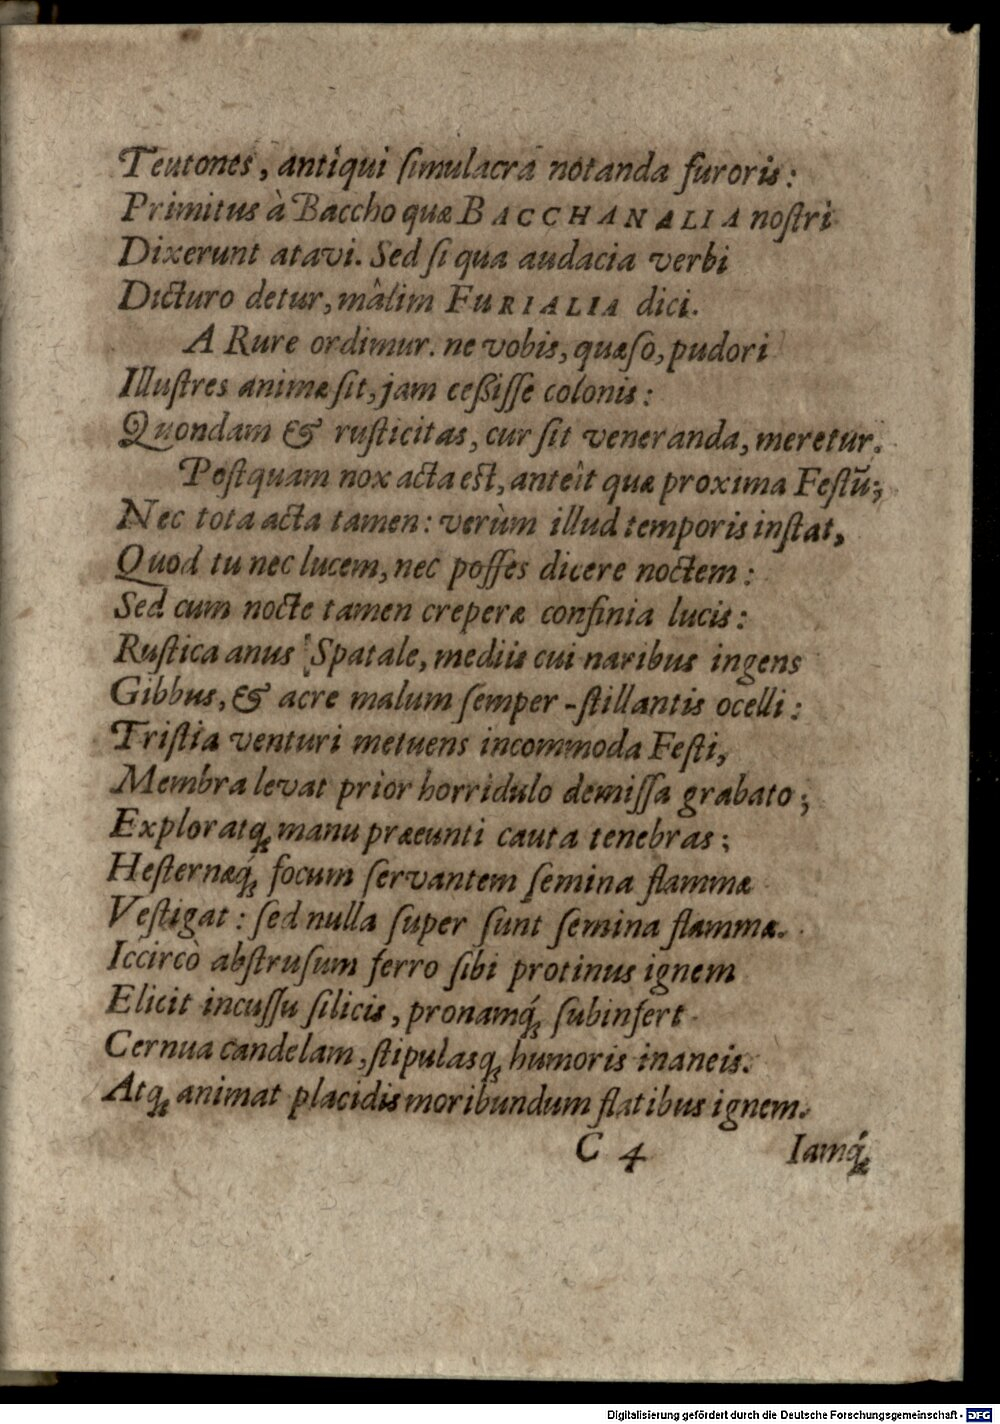 Teutones, antiqui ſimulacra notanda furoris:
Primitus à Baccho quæ BACCHANALIA noſtri
Dixerunt atavi. Sed ſi qua audacia verbi
Dicturo detur, mâlim FURIALIA dici.
A Rure ordimur. ne vobis, quæſo, pudori
Illuſtres animæ ſit, jam ceßiſſe colonis:
Quondam & ruſticitas, cur ſit veneranda, meretur.
Poſtquam nox acta eſt, anteìt quæ proxima Feſtū;
Nec tota acta tamen: verùm illud temporis inſtat,
Quod tu nec lucem, nec poſſes dicere noctem:
Sed cum nocte tamen creperæ confinia lucis:
Ruſtica anus Spatale, mediis cui naribus ingens
Gibbus, & acre malum ſemper-ſtillantis ocelli:
Triſtia venturi metuens incommoda Feſti,
Membra levat prior horridulo demiſſa grabato;
Exploratq́; manu præeunti cauta tenebras;
Heſternæq́; focum ſervantem ſemina flammæ
Veſtigat: ſed nulla ſuper ſunt ſemina flammæ.
Iccircò abſtruſum ferro ſibi protinus ignem
Elicit incuſſu ſilicis, pronamq́; ſubinfert
Cernua candelam, ſtipulasq; humoris inaneis.
Atq; animat placidis moribundum flatibus ignem.
C 4 Iamq́;
Digitalisierung gefördert durch die Deutsche Forschungsgemeinschaft - DFG